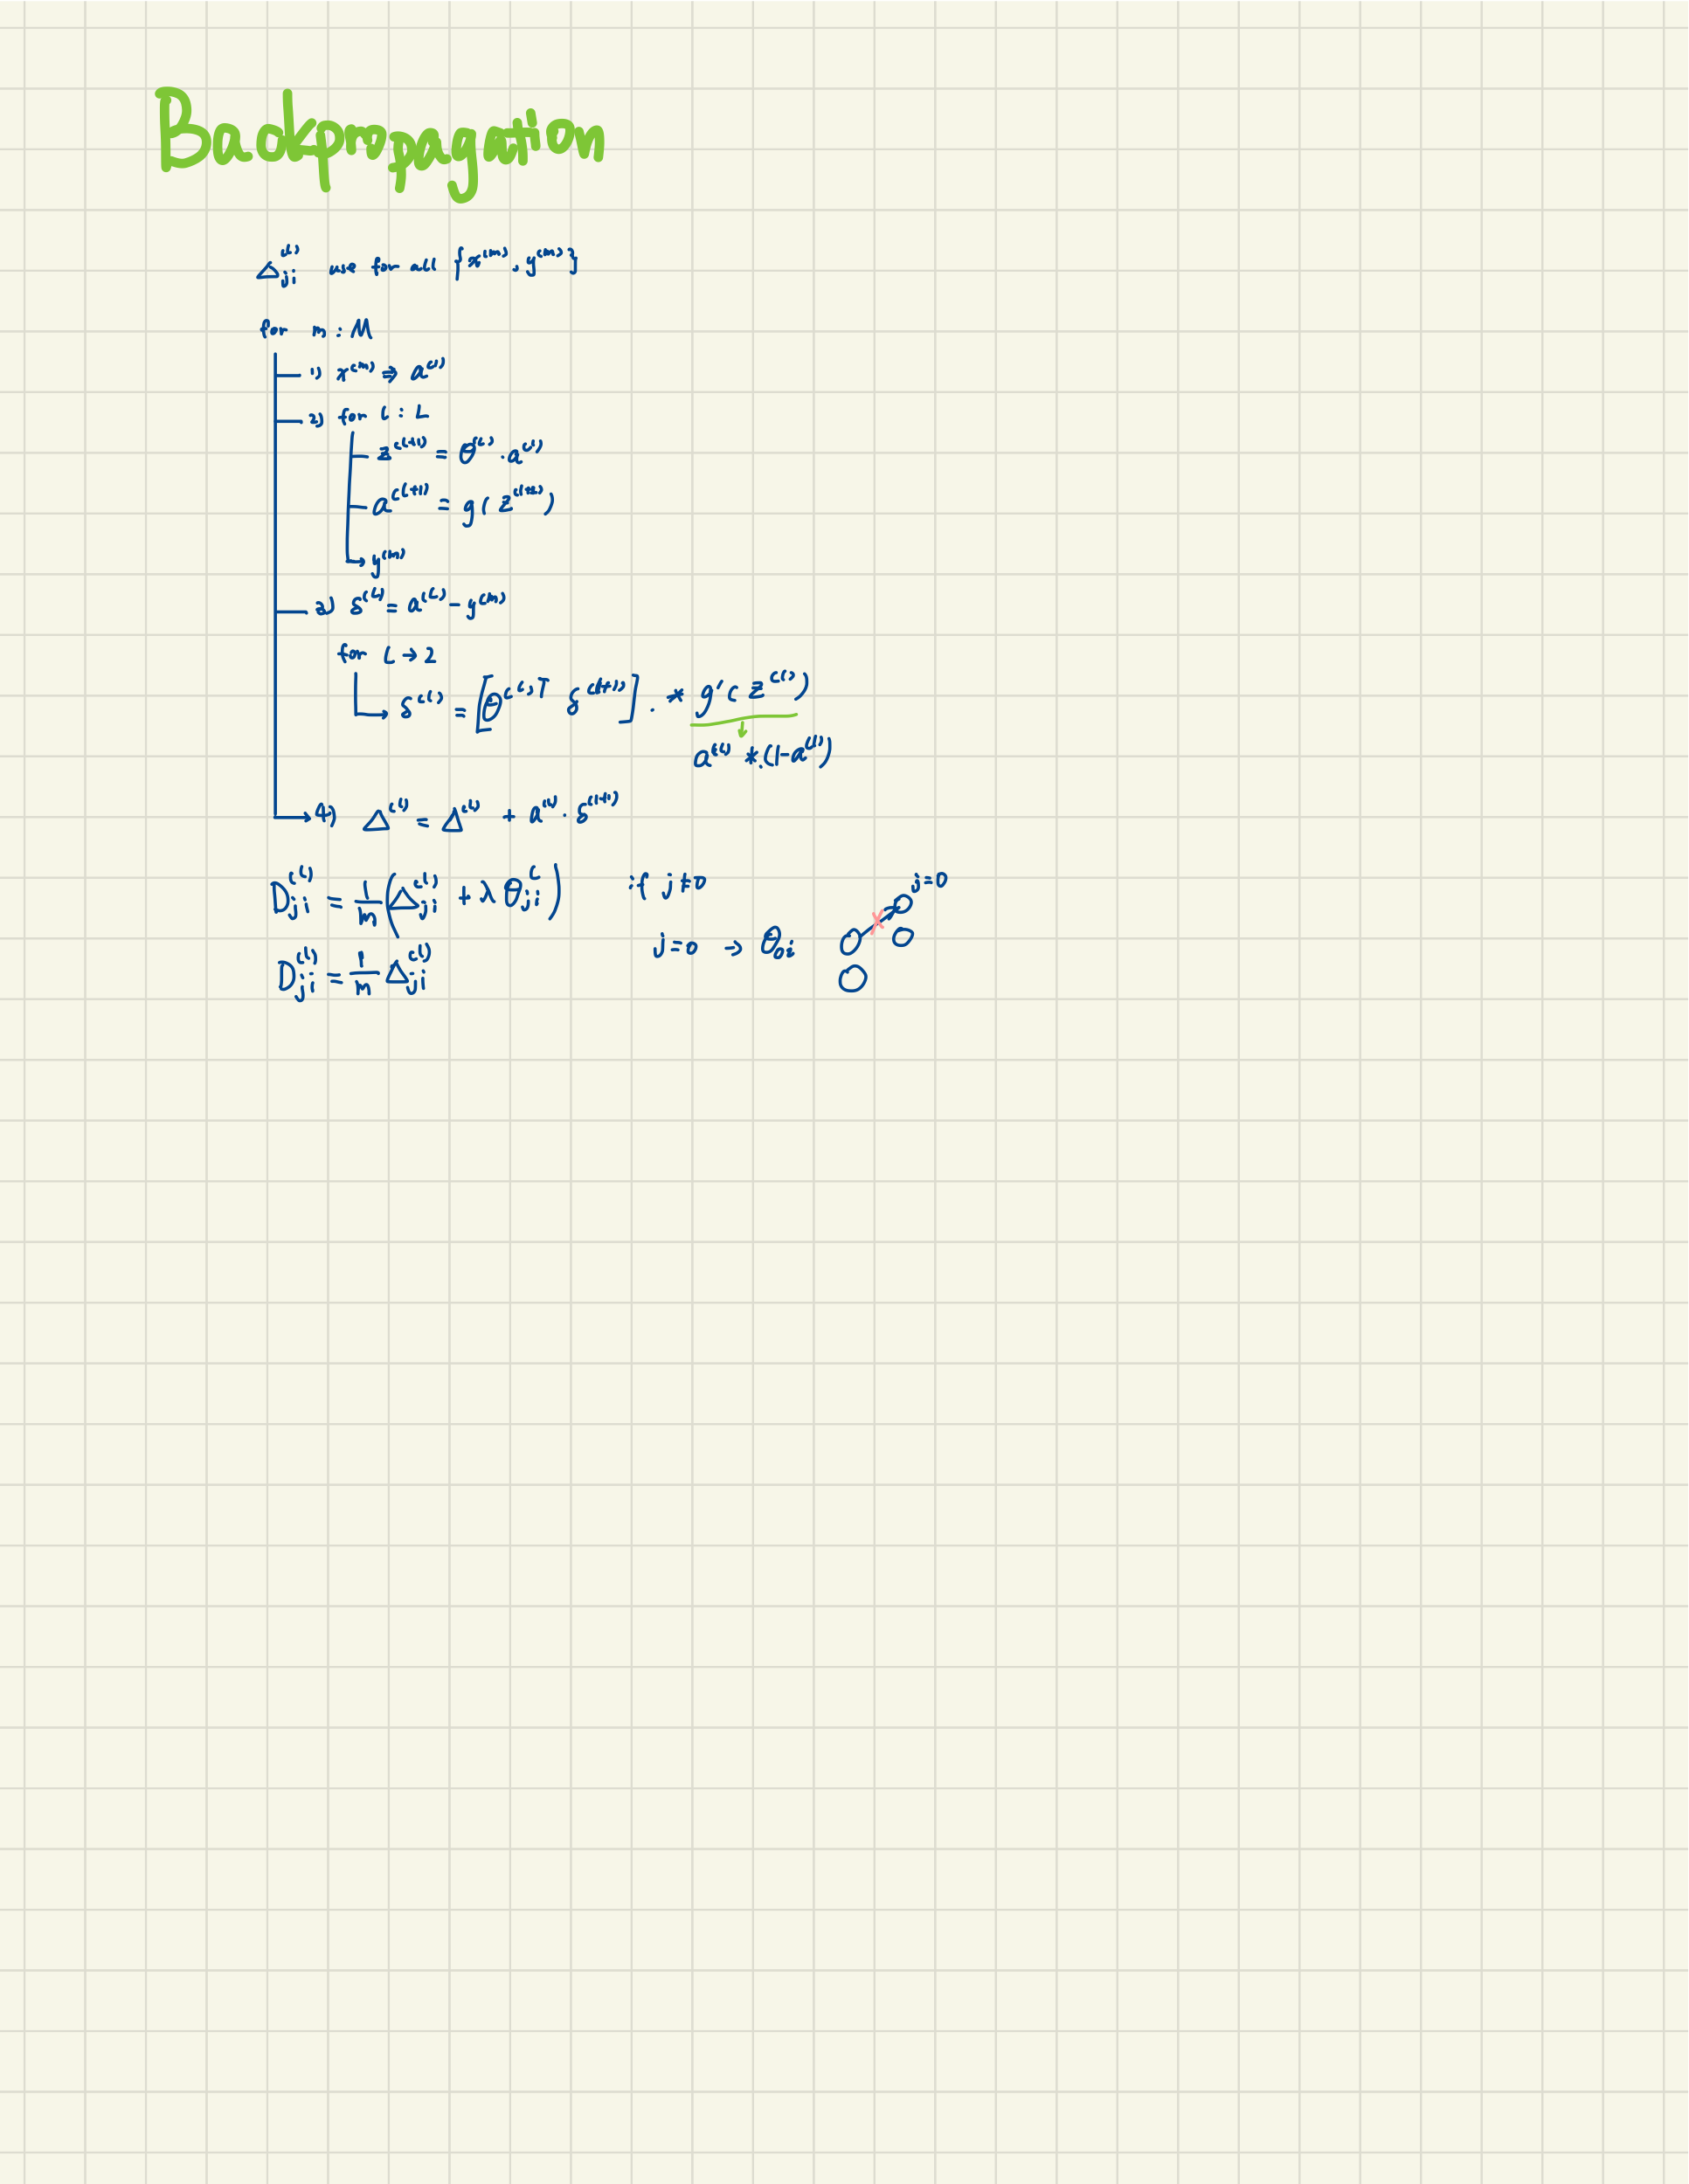 Backpropagation
Δji^(l) use for all {x^(m), y^(m)}
for m : M
1) x^(m) ⇒ a^(1)
2) for l : L
z^(l+1) = θ^(l) · a^(l)
a^(l+1) = g(z^(l+1))
→ y^(m)
3) δ^(L) = a^(L) - y^(m)
for L → 2
→ δ^(l) = [θ^(l)T δ^(l+1)] .* g'(z^(l))
↓
a^(l) *.(1-a^(l))
→ 4) Δ^(l) = Δ^(l) + a^(l) · δ^(l+1)
Dji^(l) = 1/m (Δji^(l) + λ θji^l) if j≠0
j=0
Dji^(l) = 1/m Δji^(l) j=0 → θ0i